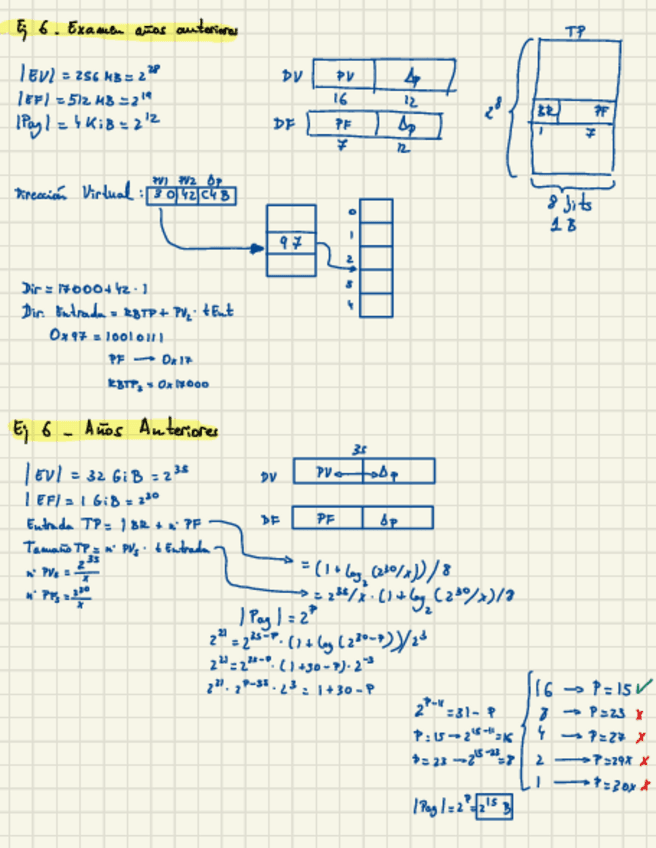 Ej 6. Examen años anteriores
|EV| = 256 MB = 2^28
|EF| = 512 KB = 2^19
|Pag| = 4 KiB = 2^12
DV PV Δp
16 12
DF PF Δp
7 12
TP
2^8
BR PF
1 7
8 bits
1 B
PV1 PV2 Δp
Dirección Virtual: 30 42 C4B
97
0
1
2
3
4
Dir = 17000+42·1
Dir. Entrada = RBTP + PV2 · tEnt
0x97 = 10010111
PF → 0x17
RBTP2 = 0x17000
Ej 6 - Años Anteriores
|EV| = 32 GiB = 2^35
|EF| = 1 GiB = 2^30
Entrada TP = 1 BR + nº PF
Tamaño TP = nº PVs · tEntrada
nº PVs = 2^35/x
nº PFs = 2^30/x
35
DV PV Δp
DF PF Δp
= (1+log2(2^30/x))/8
= 2^35/x · (1+log2(2^30/x)/8
|Pag| = 2^P
2^21 = 2^35-P · (1+log(2^30-P))/2^3
2^21 = 2^35-P · (1+30-P) · 2^-3
2^21 · 2^P-35 · 2^3 = 1+30-P
2^P-11 = 31-P
P=15 → 2^15-11 = 16
P=23 → 2^15-23 = 8
16 → P=15 ✓
8 → P=23 x
4 → P=27 x
2 → P=29x x
1 → P=30x x
|Pag| = 2^P = 2^15 B